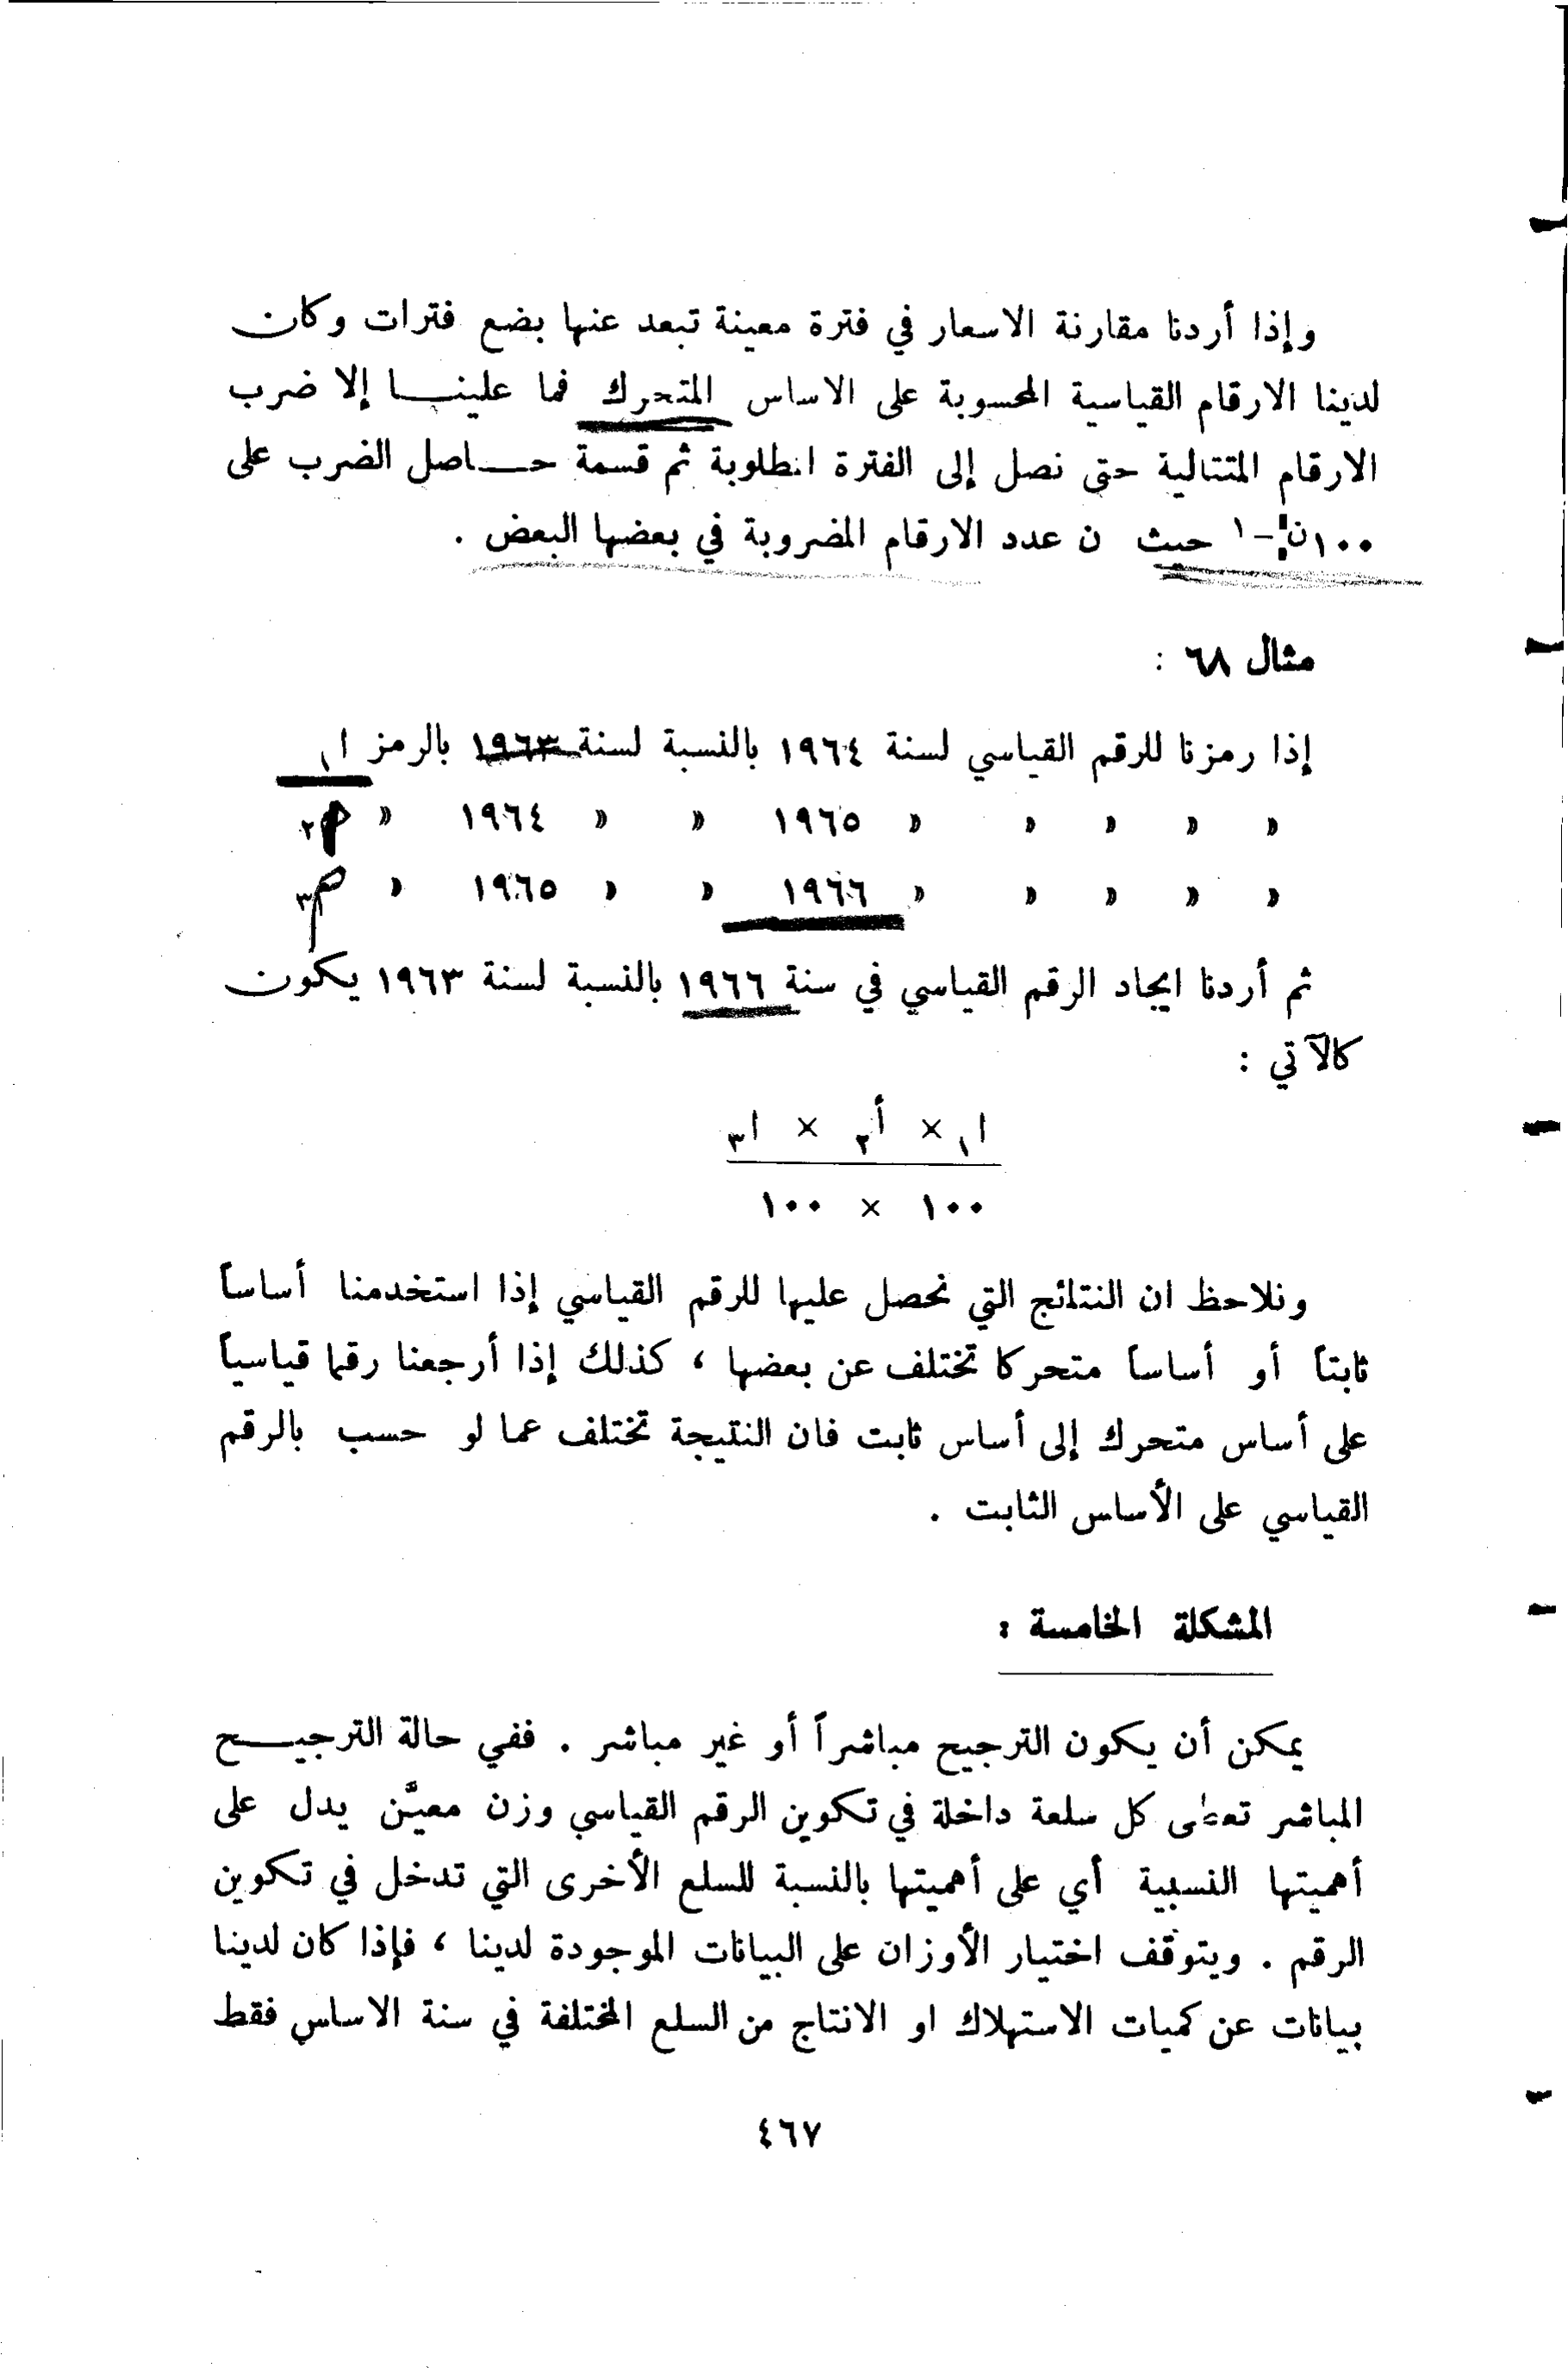 وإذا أردنا مقارنة الاسعار في فترة معينة تبعد عنها بضع فترات وكان
لدينا الارقام القياسية المحسوبة على الاساس المتحرك فما علينـــا إلا ضرب
الارقام المتتالية حتى نصل إلى الفترة المطلوبة ثم قسمة حـــاصل الضرب على
١٠٠ن-١ حيث ن عدد الارقام المضروبة في بعضها البعض .
مثال ٦٨ :
إذا رمزنا للرقم القياسي لسنة ١٩٦٤ بالنسبة لسنة ١٩٦٣ بالرمز ا١
» » » » » ١٩٦٥ » » ١٩٦٤ » م٢
» » » » » ١٩٦٦ » » ١٩٦٥ » م٣
ثم أردنا ايجاد الرقم القياسي في سنة ١٩٦٦ بالنسبة لسنة ١٩٦٣ يكون
كالآتي :
ا١ × أ٢ × ا٣
١٠٠ × ١٠٠
ونلاحظ ان النتائج التي نحصل عليها للرقم القياسي إذا استخدمنا أساساً
ثابتاً أو أساساً متحركا تختلف عن بعضها ، كذلك إذا أرجعنا رقما قياسياً
على أساس متحرك إلى أساس ثابت فان النتيجة تختلف عما لو حسب بالرقم
القياسي على الأساس الثابت .
المشكلة الخامسة :
يمكن أن يكون الترجيح مباشراً أو غير مباشر . ففي حالة الترجيـــح
المباشر تعطى كل سلعة داخلة في تكوين الرقم القياسي وزن معيَّن يدل على
أهميتها النسبية أي على أهميتها بالنسبة للسلع الأخرى التي تدخل في تكوين
الرقم . ويتوقف اختيار الأوزان على البيانات الموجودة لدينا ، فإذا كان لدينا
بيانات عن كميات الاستهلاك او الانتاج من السلع المختلفة في سنة الاساس فقط
٤٦٧